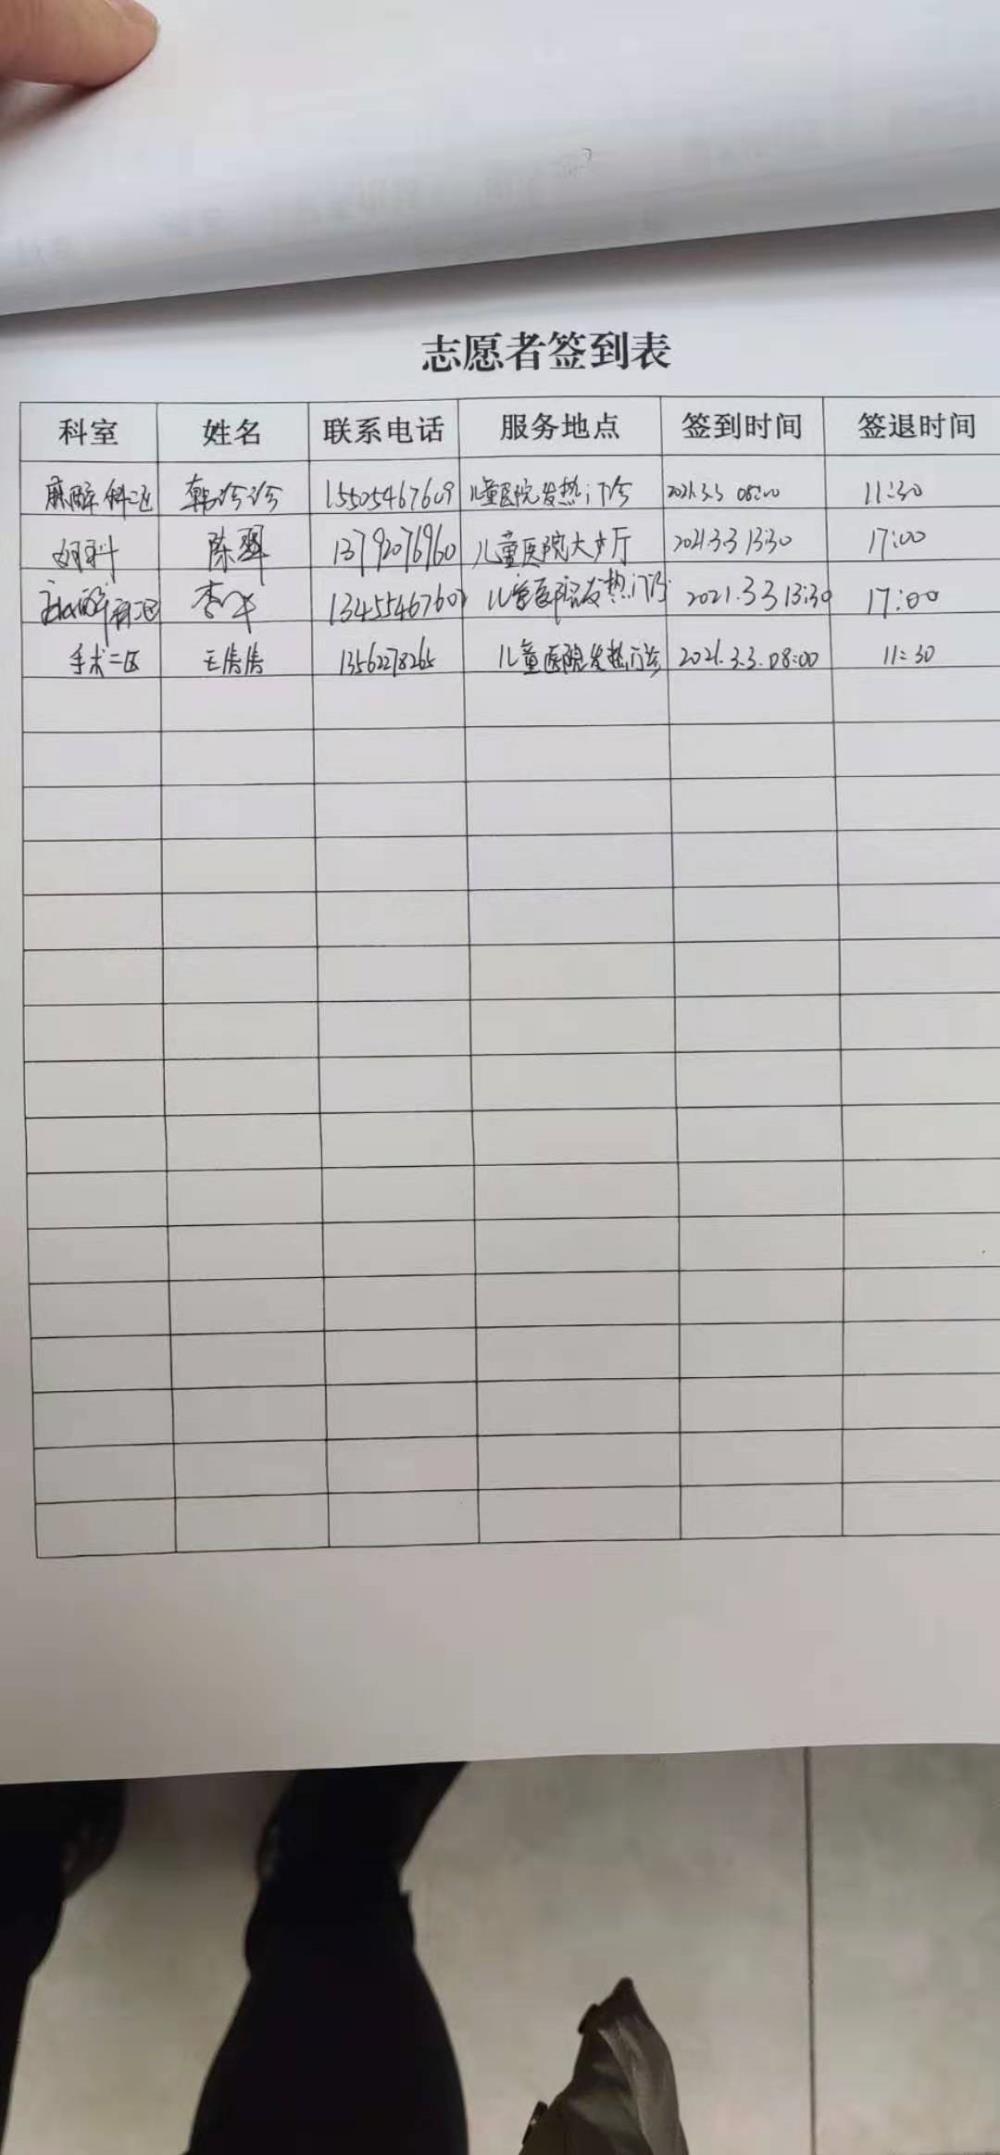 志愿者签到表
科室 姓名 联系电话 服务地点 签到时间 签退时间
麻醉科二区 韩珍珍 儿童医院发热门诊 2021.3.3 08:00 11:30
陈翠 13792076960 儿童医院大厅 2021.3.3 13:30 17:00
李 儿童医院发热门诊 2021.3.3 13:30 17:00
手术二区 王倩倩 13562278265 儿童医院发热门诊 2021.3.3. 08:00 11:30